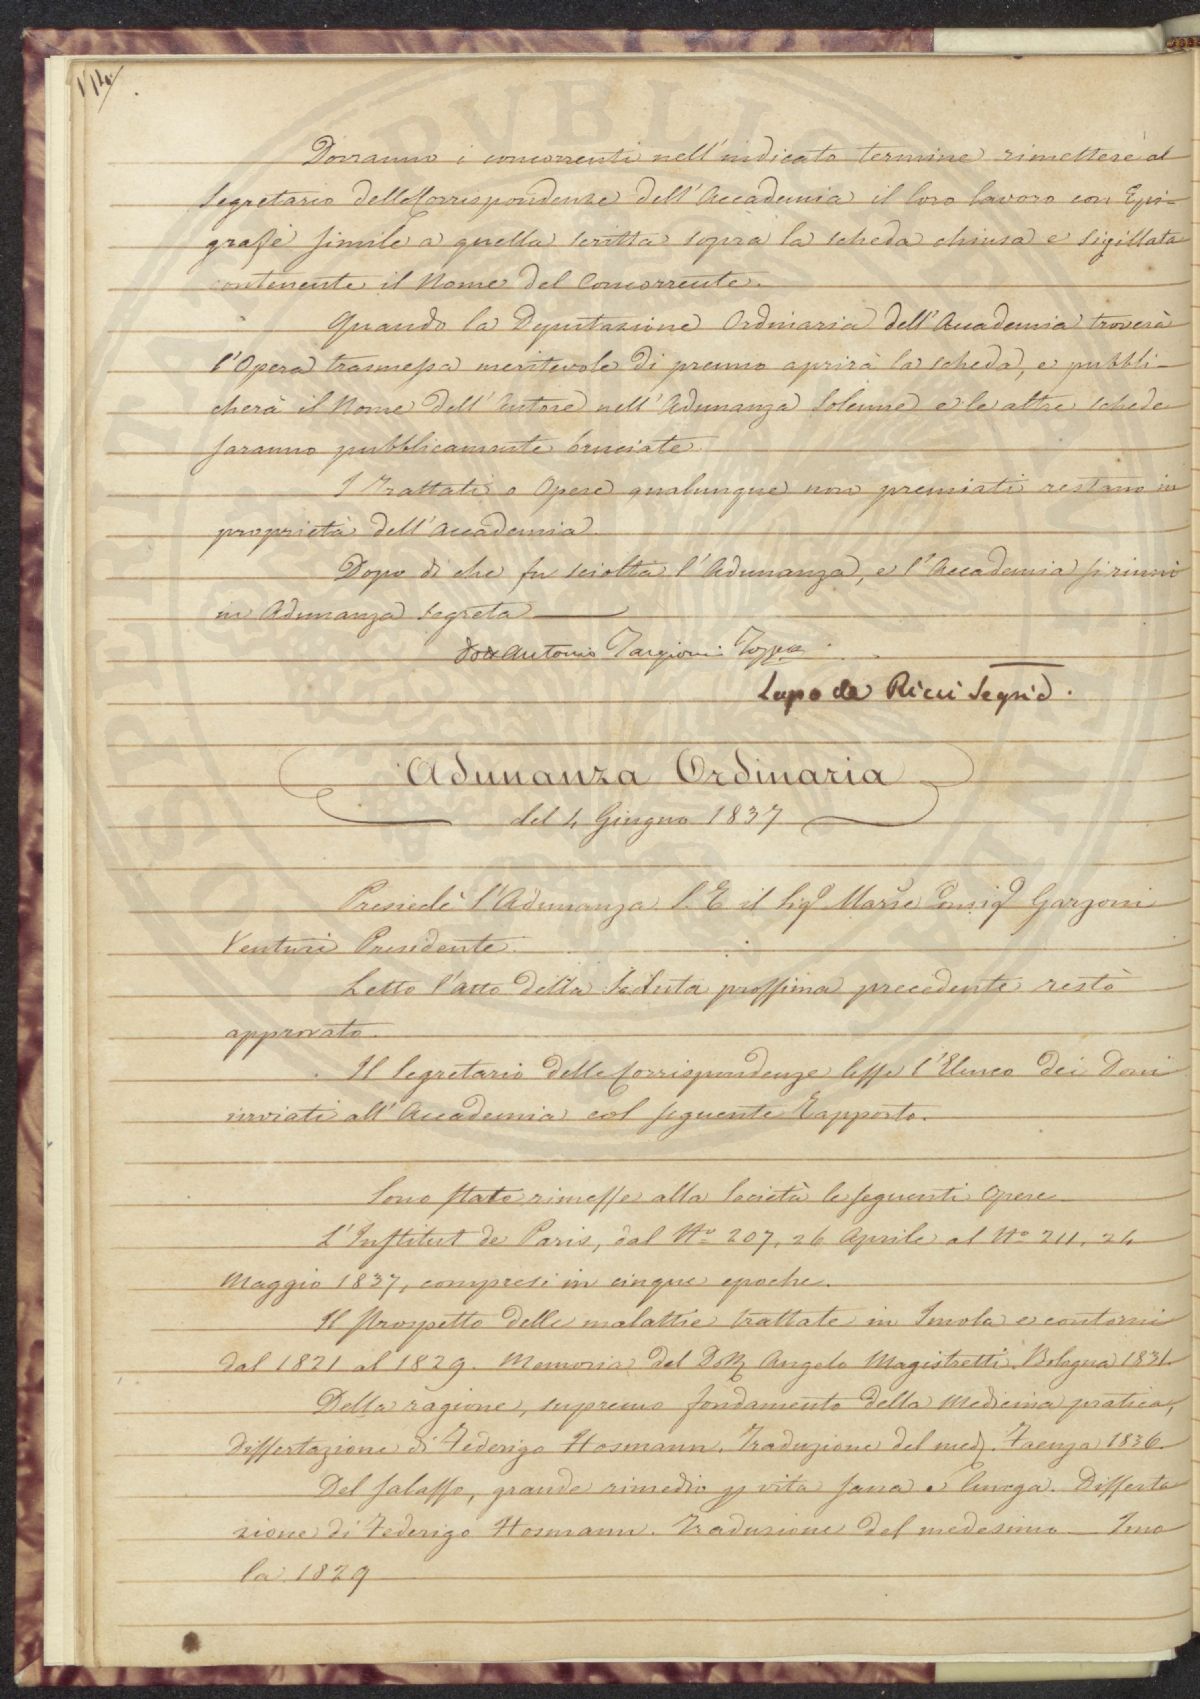 114
Dovranno i concorrenti nell'indicato termine rimettere al
Segretario delle Corrispondenze dell'Accademia il loro lavoro con Epi-
grafe simile a quella scritta sopra la scheda chiusa e sigillata
contenente il Nome del Concorrente.
Quando la Deputazione Ordinaria dell'Accademia troverà
l'Opera trasmessa meritevole di premio aprirà la scheda, e pubbli-
cherà il Nome dell'Autore nell'Adunanza Solenne e le altre schede
saranno pubblicamente bruciate.
I Trattati o Opere qualunque non premiati restano in
proprietà dell'Accademia.
Dopo di che fu sciolta l'Adunanza, e l'Accademia si riunì
in Adunanza segreta
Dott Antonio Targioni Tozzetti
Lapo de Ricci Segrio.
Adunanza Ordinaria
del 4 Giugno 1837
Presiedè l'Adunanza S. E il Sigr Marse Consigr Garzoni
Venturi Presidente.
Letto l'atto della Seduta prossima precedente restò
approvato.
Il Segretario delle Corrispondenze lesse l'Elenco dei Doni
inviati all'Accademia col seguente Rapporto.
Sono state rimesse alla Società le seguenti Opere
L'Institut de Paris, dal No 207, 26 Aprile al No 211, 24
Maggio 1837, compresi in cinque epoche.
Il Prospetto delle malattie trattate in Imola e contorni
dal 1821 al 1829. Memoria del Dott Angelo Magistretti. Bologna 1831.
Della ragione, supremo fondamento della Medicina pratica,
Dissertazione di Federigo Hosmann. Traduzione del med. Faenza 1836.
Del salasso, grande rimedio p vita sana e lunga. Disserta
zione di Federigo Hosmann. Traduzione del medesimo Imo
la 1829
PVBLIC